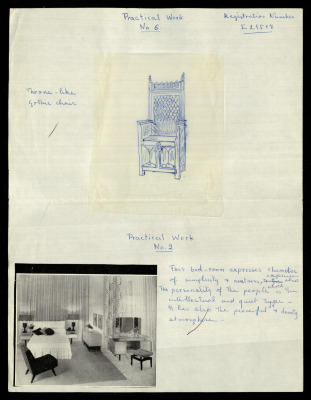 Practical Work
No. 6
Registration Number
Throne-like
Gothic chair
Practical Work
No. 2
This bed-room expresses character
of simplicity &
The personality of the people is
intellectual and quiet type -
It has also the peaceful &
atmosphere -